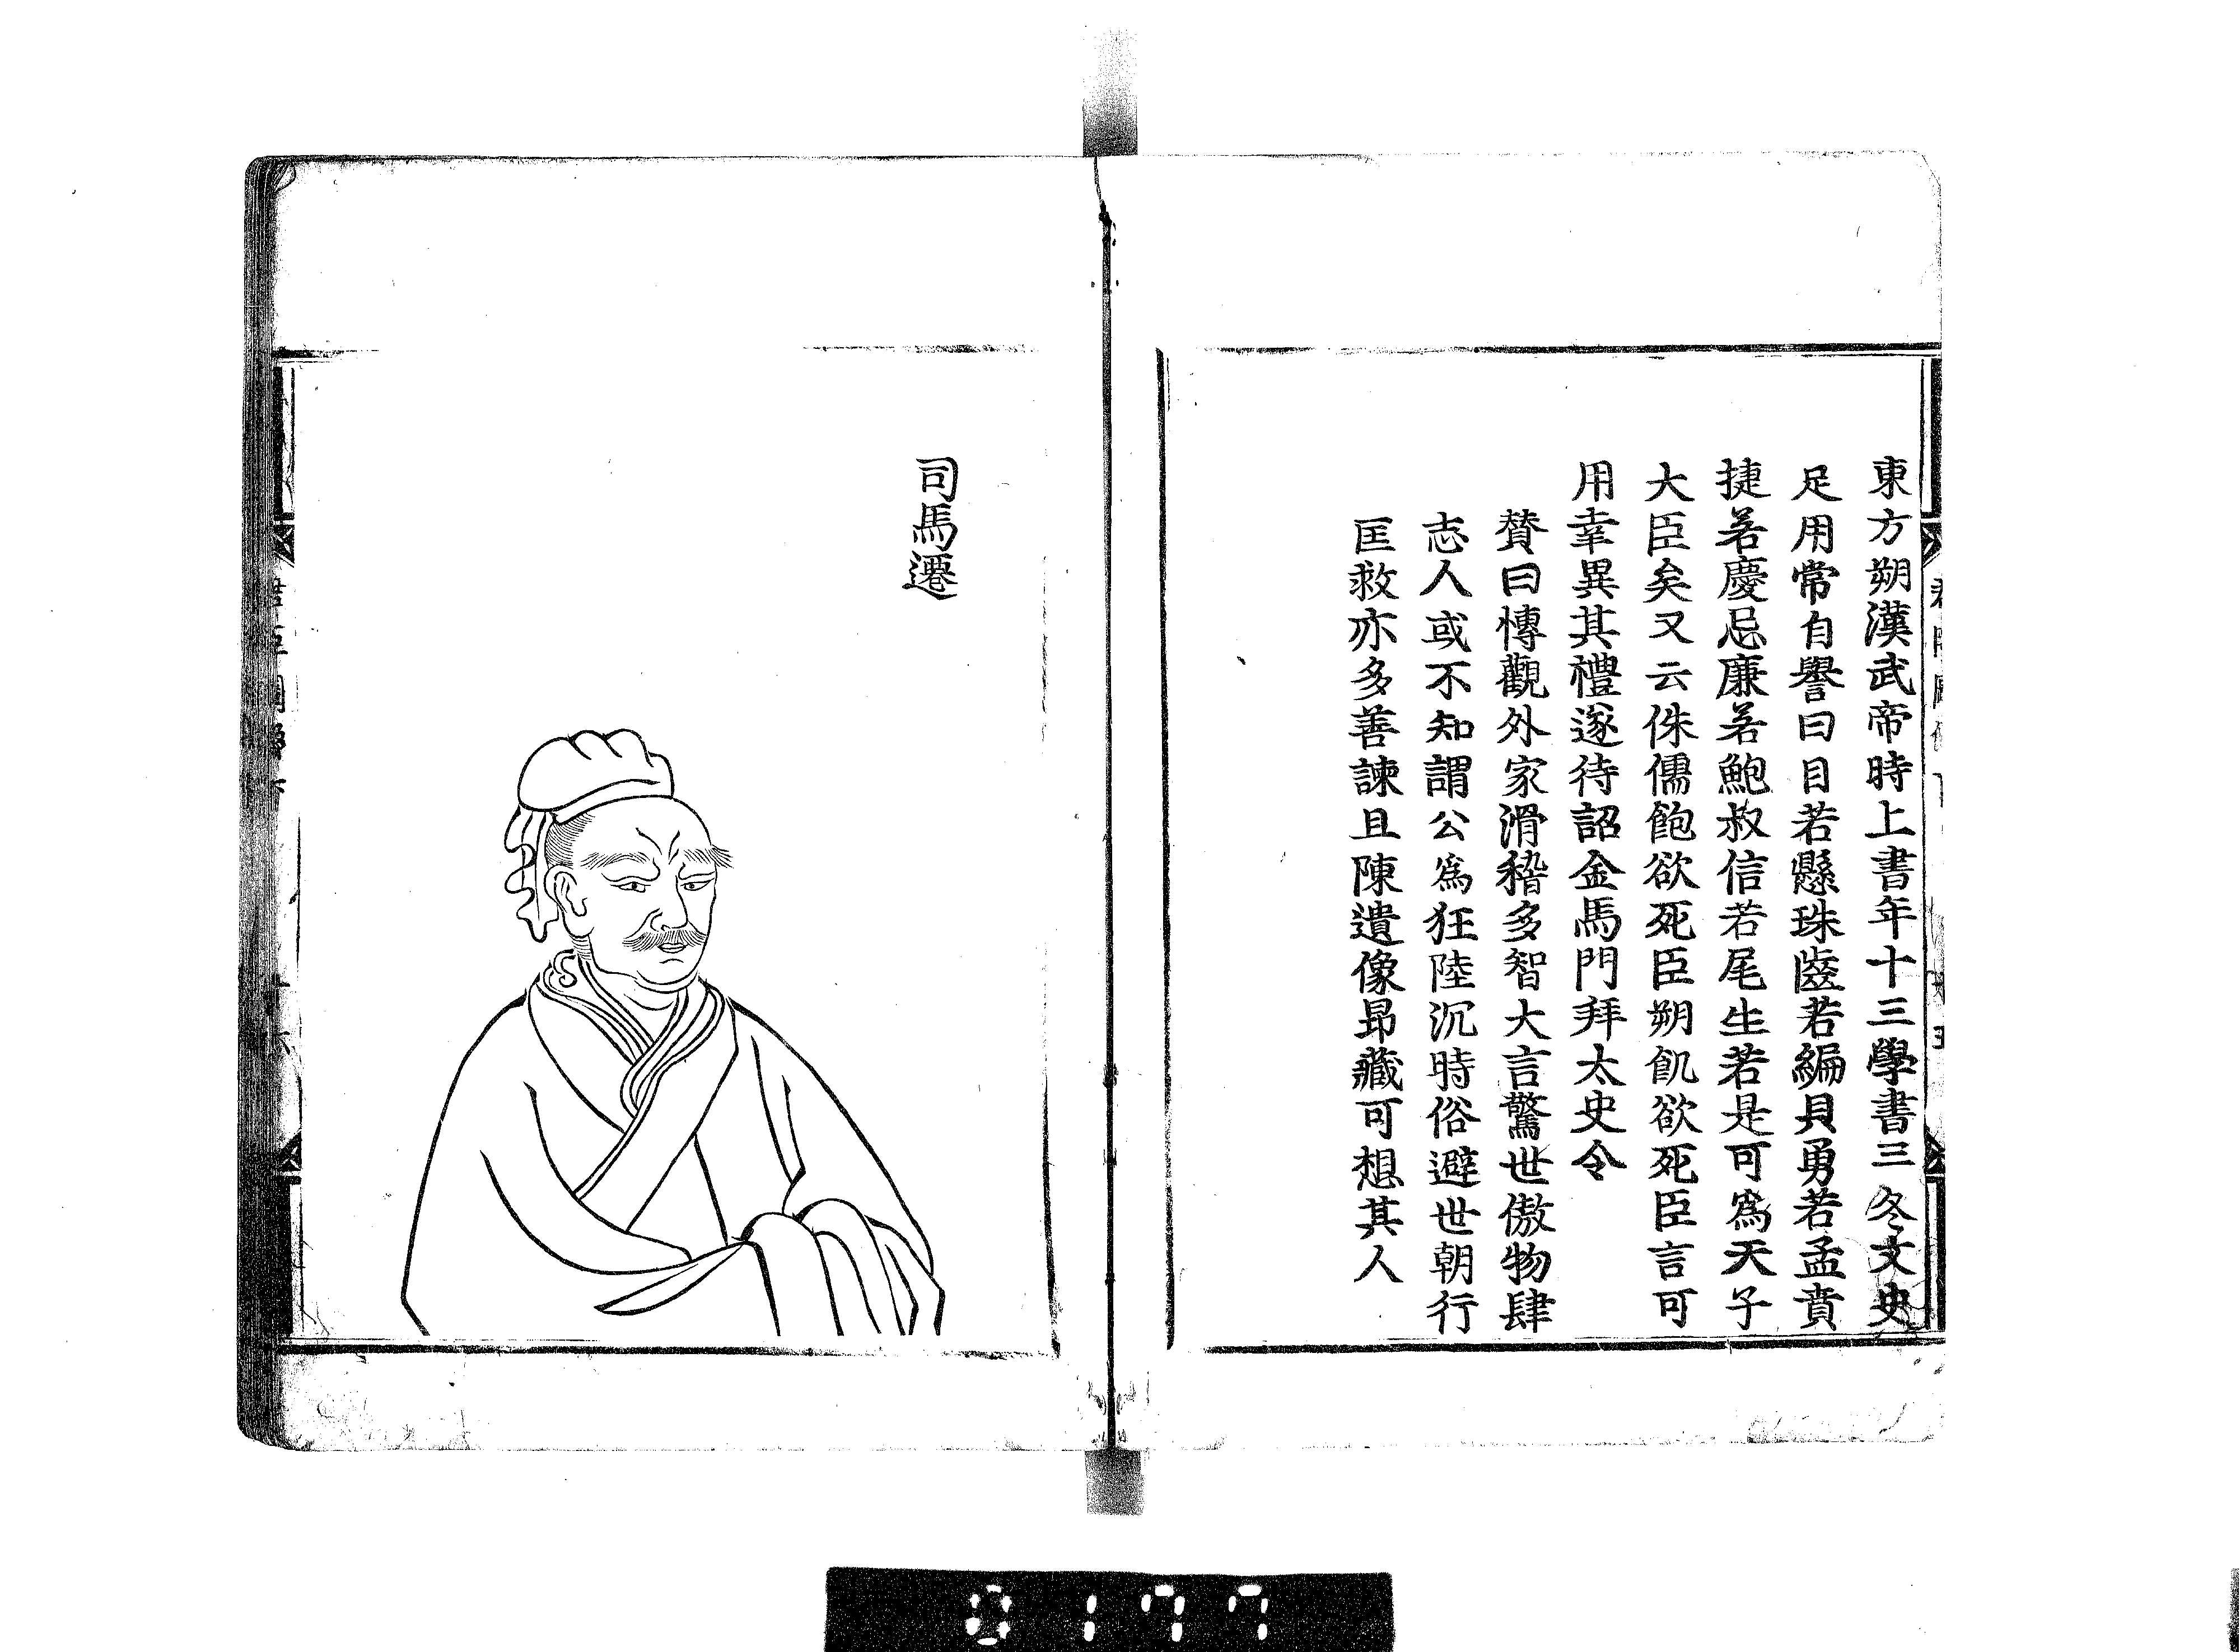 東方朔漢武帝時上書年十三學書三冬文史
足用常自譽曰目若懸珠齒若編貝勇若孟賁
捷若慶忌廉若鮑叔信若尾生若是可爲天子
大臣矣又云侏儒飽欲死臣朔飢欲死臣言可
用幸異其禮遂待詔金馬門拜太史令
贊曰慱觀外家滑稽多智大言驚世傲物肆
志人或不知謂公爲狂陸沉時俗避世朝行
匡救亦多善諫且陳遺像昻藏可想其人
司馬遷
0177